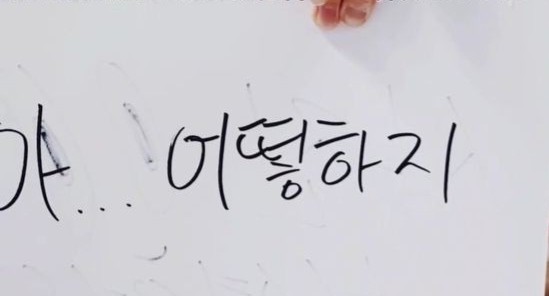 아... 어떻하지